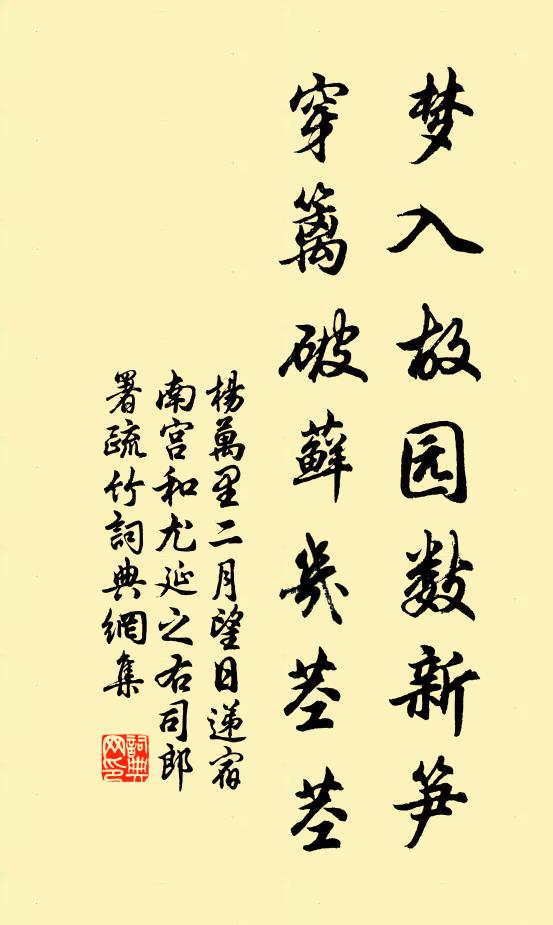 梦入故园数新笋
穿篱破藓几茎茎
楊萬里二月望日递宿
南宫和尤延之右司郎
署疏竹詞典網集
詞典网印